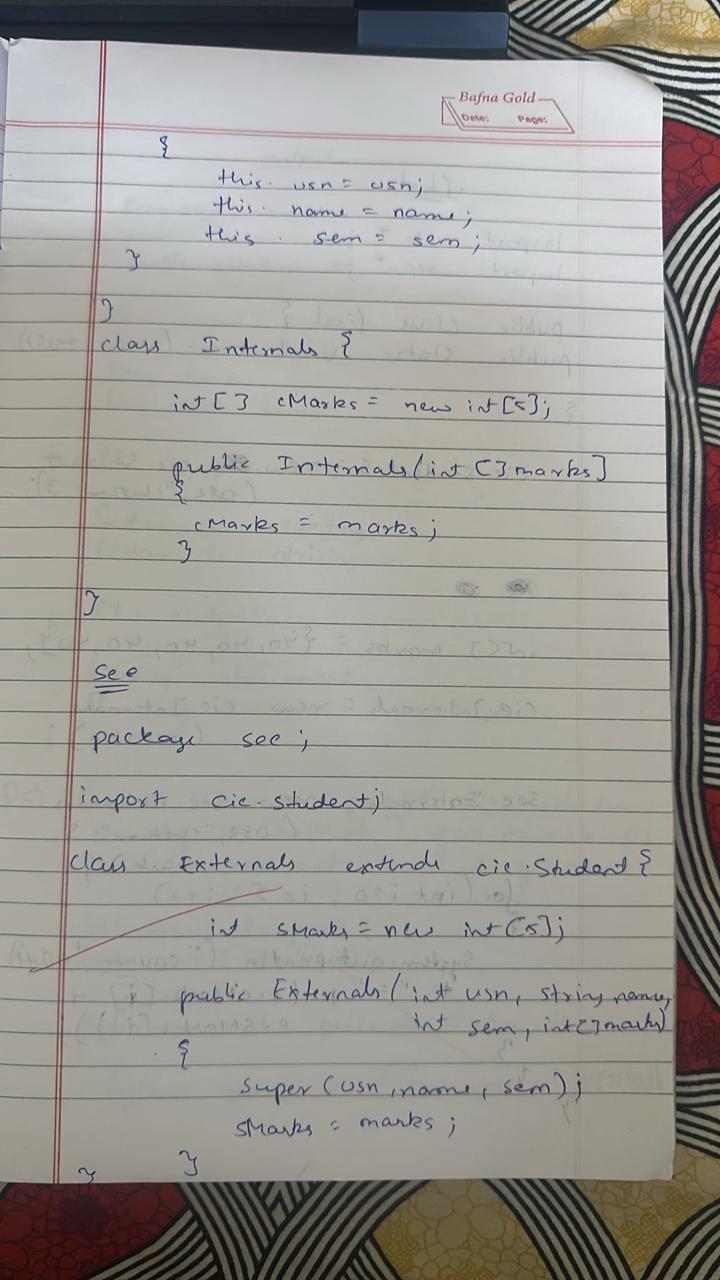 Bafna Gold
Date: Page:
{
this. usn = usn;
this. name = name;
this. sem = sem;
}
}
class Internals {
int [ ] cMarks = new int [5];
public Internals (int [] marks]
{
cMarks = marks;
}
}
See
package see ;
import cie. student;
class Externals extends cie. Student {
int sMarks = new int [5];
public Externals ( int usn, string name,
int sem, int[] marks)
{
super (usn, name, sem);
sMarks = marks ;
}
}